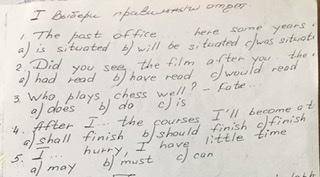 I Выбери правильный ответ
1. The post office ... here some years
a) is situated b) will be situated c) was situat
2. Did you see the film after you ... the
a) had read b) have read c) would read
3. Who plays chess well? - Kate...
a) does b) do c) is
4. After I ... the courses I'll become a t
a) shall finish b) should finish c) finish
5. I ... hurry, I have little time
a) may b) must c) can